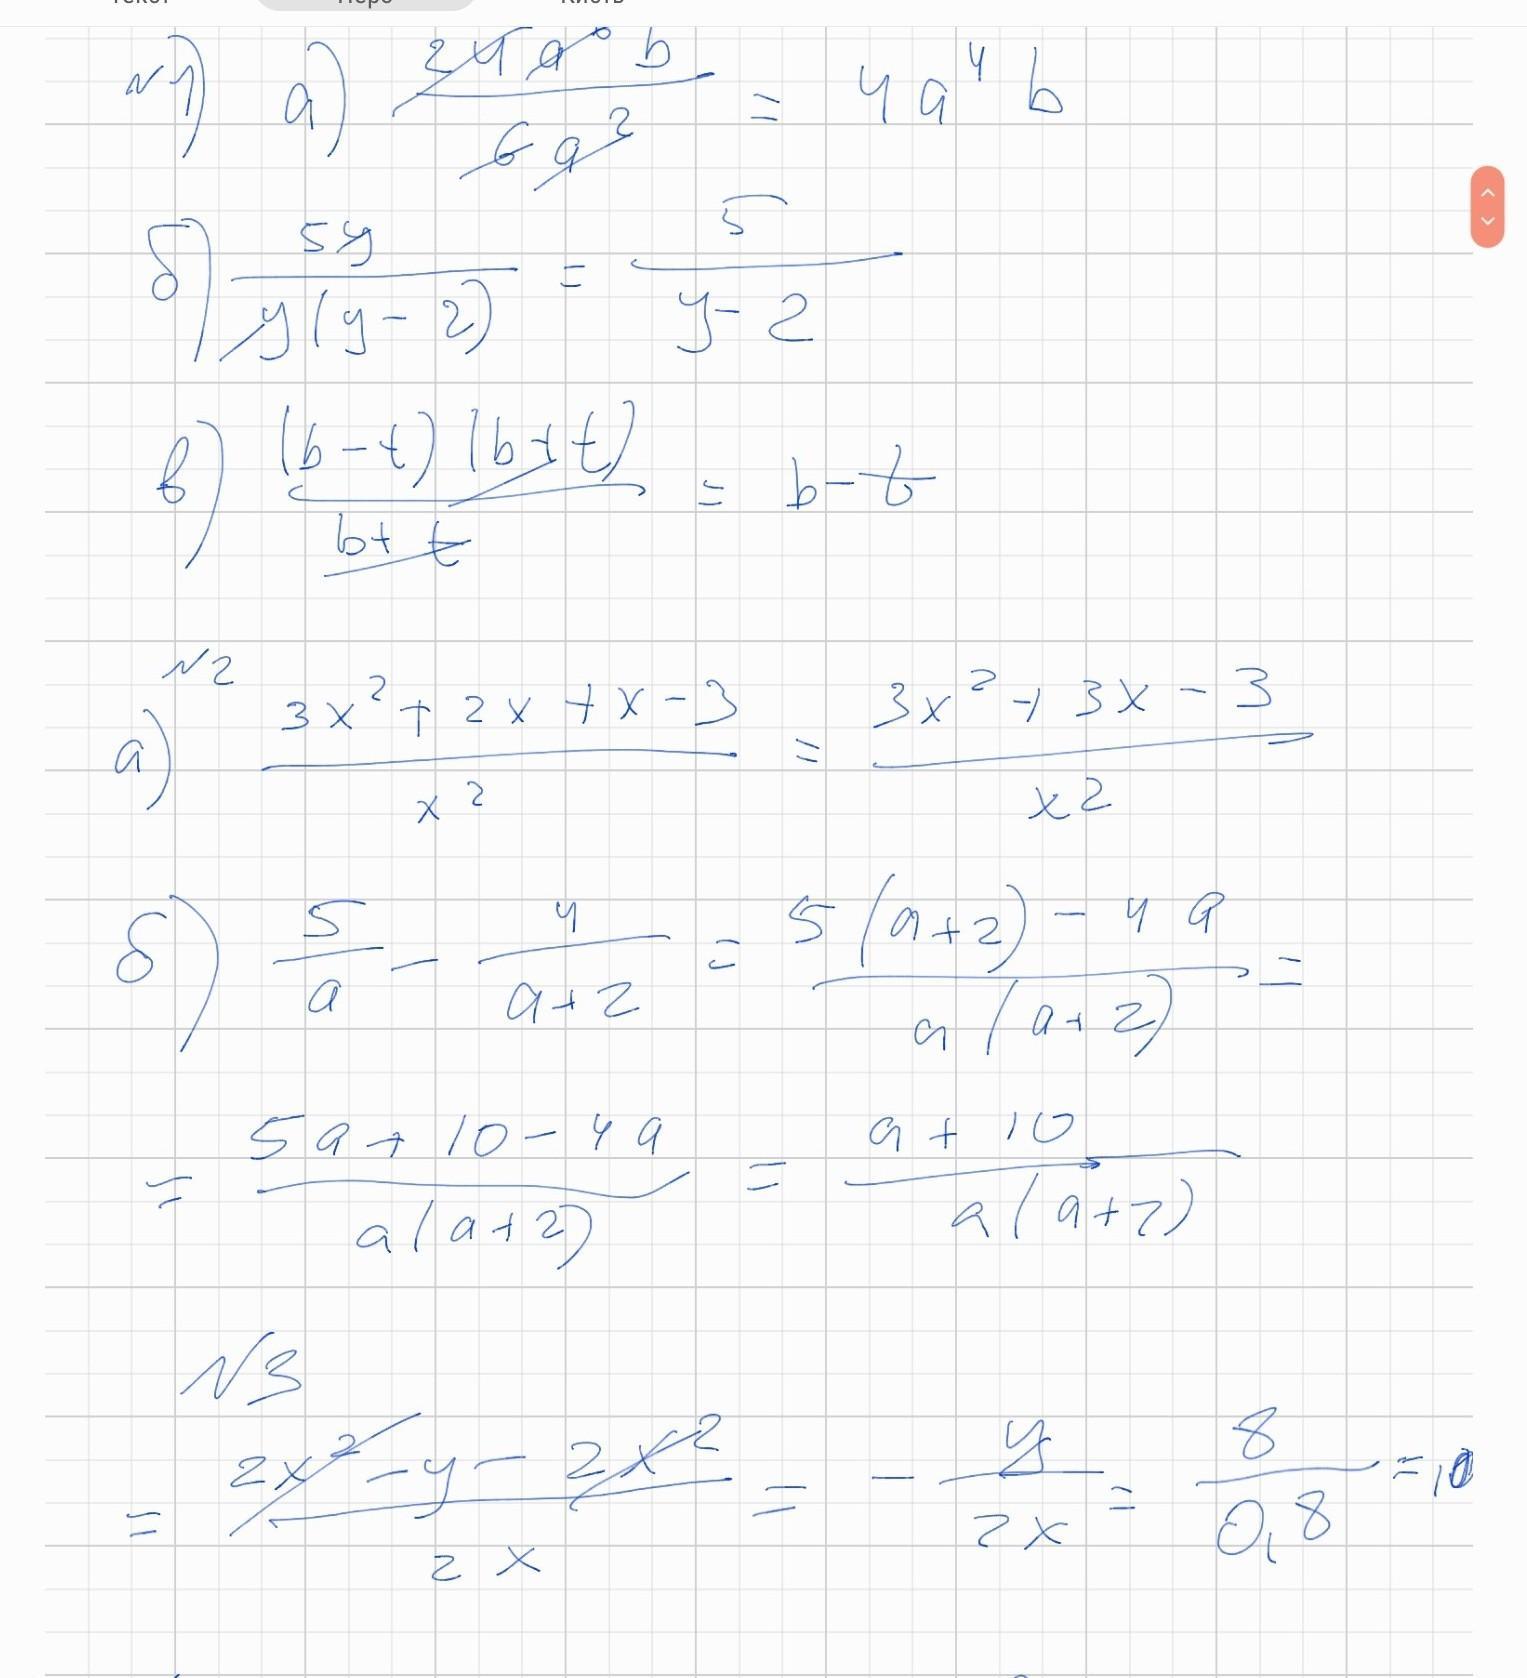 №1) а) 24a⁶b / 6a² = 4a⁴b
б) 5y / y(y-2) = 5 / y-2
в) (b-t)(b+t) / b+t = b-t
№2
а) 3x²+2x+x-3 / x² = 3x²+3x-3 / x2
б) 5/a - 4/a+2 = 5(a+2)-4a / a(a+2) =
= 5a+10-4a / a(a+2) = a+10 / a(a+2)
№3
= 2x²-y-2x² / 2x = - y/2x = 8/0,8 = 10